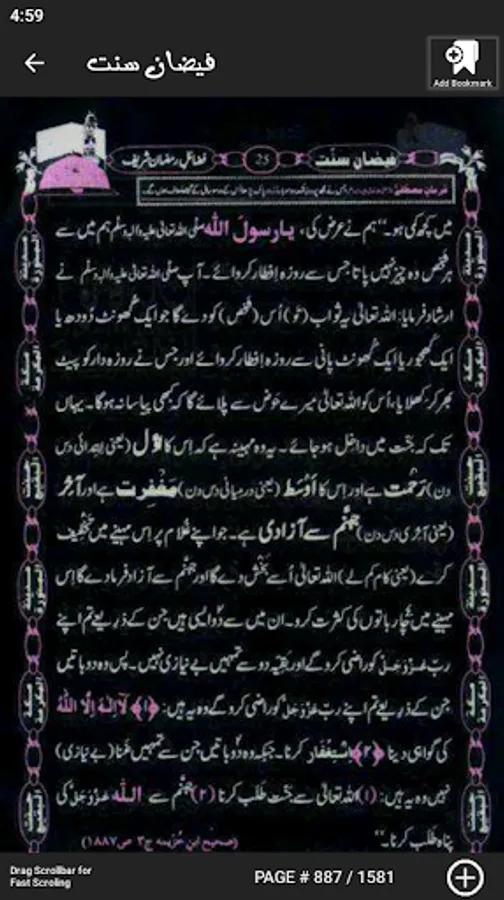 4:59
فیضان سنت
Add Bookmark
فیضانِ سنّت
25
فضائلِ رمضان شریف
میں کچھ کمی ہو۔‘‘ ہم نے عرض کی، یا رسولَ اللہ صلی اللہ تعالیٰ علیہ والہ وسلم ہم میں سے
ہر شخص وہ چیز نہیں پاتا جس سے روزہ اِفطار کروائے۔ آپ صلی اللہ تعالیٰ علیہ والہ وسلم نے
ارشاد فرمایا: اللہ تعالیٰ یہ ثواب (تو) اُس (شخص) کو دے گا جو ایک گُھونٹ دُودھ یا
ایک کَھجور یا ایک گُھونٹ پانی سے روزہ اِفطار کروائے اور جس نے روزہ دار کو پیٹ
بھر کر کِھلایا، اُس کو اللہ تعالیٰ میرے حَوض سے پلائے گا کہ کبھی پیاسا نہ ہوگا۔ یہاں
تک کہ جنّت میں داخِل ہو جائے۔ یہ وہ مہینہ ہے کہ اِس کا اوّل (یعنی اِبتدائی دس
دن) رَحْمت ہے اور اِس کا اَوْسَط (یعنی درمیانی دس دن) مَغْفِرت ہے اور آخر
(یعنی آخری دس دن) جہنّم سے آزادی ہے۔ جو اپنے غُلام پر اِس مہینے میں تَخْفِیف
کرے (یعنی کام کم لے) اللہ تعالیٰ اُسے بَخْش دے گا اور جہنَّم سے آزاد فرما دے گا اِس
مہینے میں چار باتوں کی کثرت کرو۔ ان میں سے دو ایسی ہیں جن کے ذَرِیعے تم اپنے
ربّ عَزَّوَجَلَّ کو راضی کرو گے اور بقیہ دو سے تمہیں بے نیازی نہیں۔ پس وہ دو باتیں
جن کے ذَرِیعے تم اپنے ربّ عَزَّوَجَلَّ کو راضی کرو گے وہ یہ ہیں: ﴿۱﴾ لَآ اِلٰہَ اِلَّا اللہُ
کی گواہی دینا ﴿۲﴾ اِسْتِغْفَار کرنا۔ جبکہ وہ دو باتیں جن سے تمہیں غنا (بے نیازی)
نہیں وہ یہ ہیں: (۱) اللہ تعالیٰ سے جنّت طَلَب کرنا (۲) جہنَّم سے اللہ عَزَّوَجَلَّ کی
پناہ طَلَب کرنا۔‘‘
(صحیح ابن خزیمہ ج۳ ص۱۸۸۷)
Drag Scrollbar for
Fast Scroling
PAGE # 887 / 1581